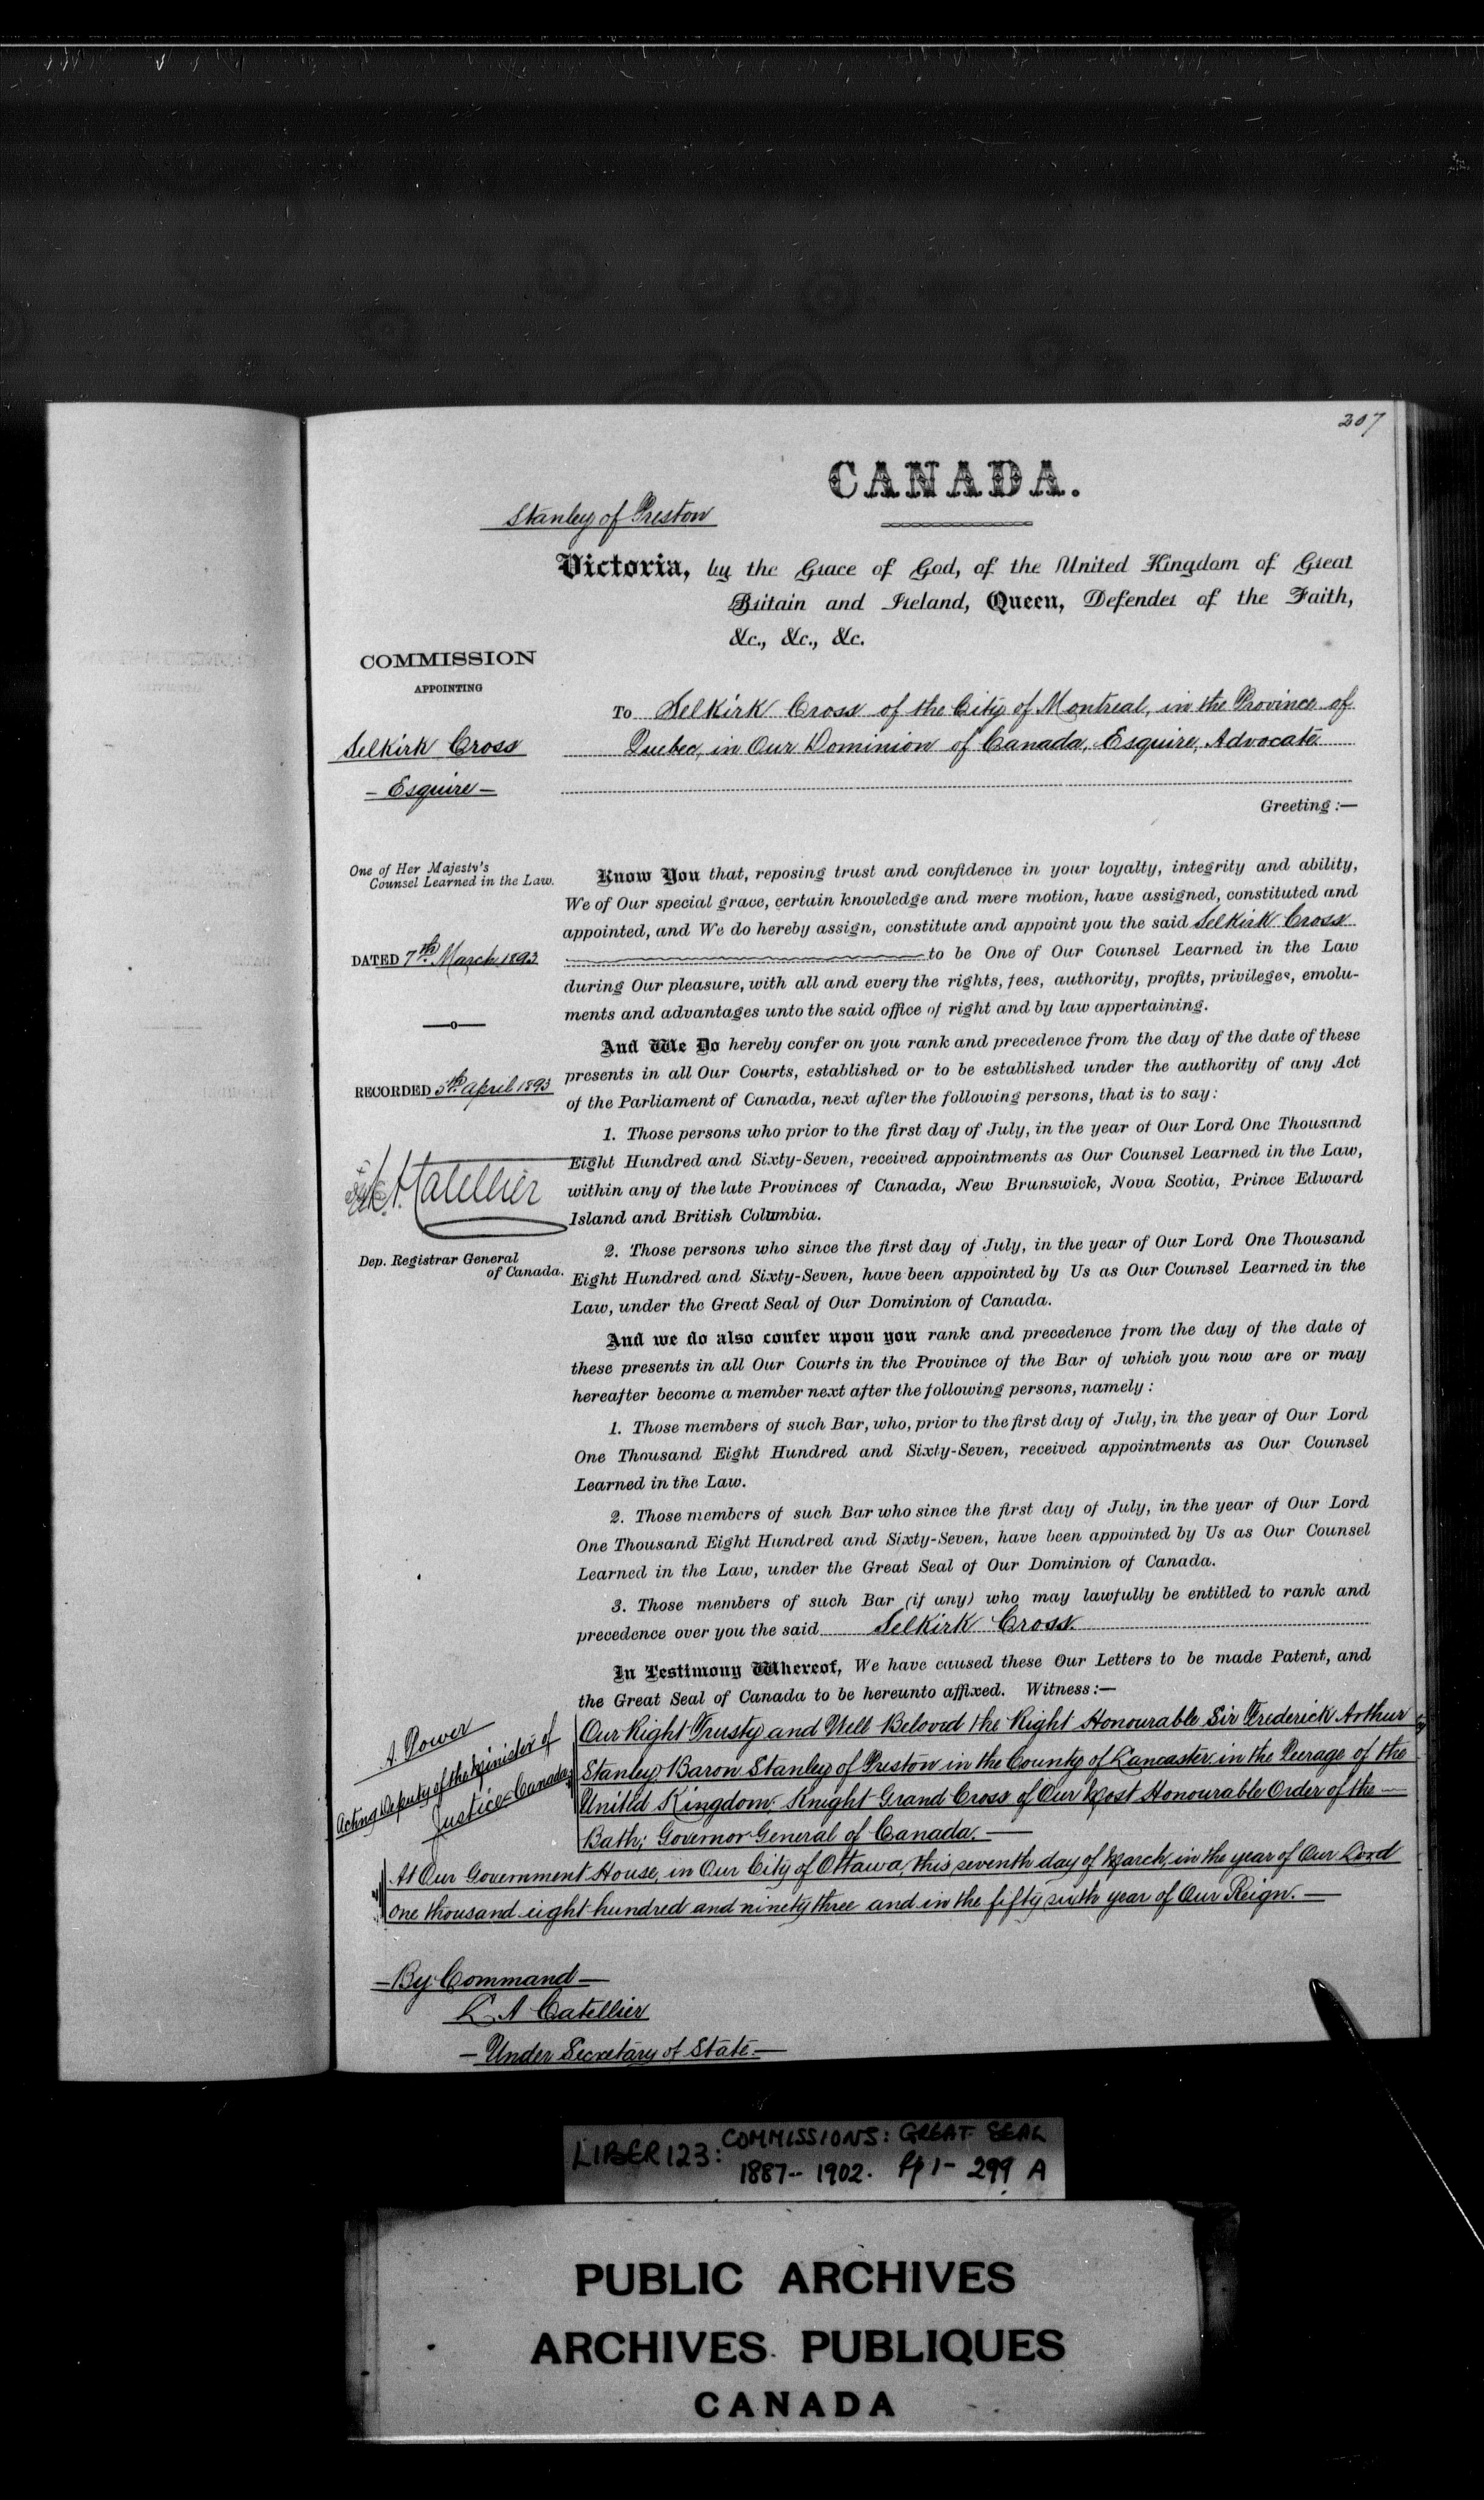 207
CANADA.
Stanley of Preston
Victoria, by the Grace of God, of the United Kingdom of Great
Britain and Ireland, Queen, Defender of the Faith,
&c., &c., &c.
COMMISSION
APPOINTING
Selkirk Cross
- Esquire -
One of Her Majesty's
Counsel Learned in the Law.
DATED 7th March 1893
RECORDED 5th April 1893
L. A. Catellier
Dep. Registrar General
of Canada.
To Selkirk Cross of the City of Montreal, in the Province of
Quebec, in Our Dominion of Canada, Esquire, Advocate
Greeting :—
Know You that, reposing trust and confidence in your loyalty, integrity and ability,
We of Our special grace, certain knowledge and mere motion, have assigned, constituted and
appointed, and We do hereby assign, constitute and appoint you the said Selkirk Cross
to be One of Our Counsel Learned in the Law
during Our pleasure, with all and every the rights, fees, authority, profits, privileges, emolu-
ments and advantages unto the said office of right and by law appertaining.
And We Do hereby confer on you rank and precedence from the day of the date of these
presents in all Our Courts, established or to be established under the authority of any Act
of the Parliament of Canada, next after the following persons, that is to say:
1. Those persons who prior to the first day of July, in the year of Our Lord One Thousand
Eight Hundred and Sixty-Seven, received appointments as Our Counsel Learned in the Law,
within any of the late Provinces of Canada, New Brunswick, Nova Scotia, Prince Edward
Island and British Columbia.
2. Those persons who since the first day of July, in the year of Our Lord One Thousand
Eight Hundred and Sixty-Seven, have been appointed by Us as Our Counsel Learned in the
Law, under the Great Seal of Our Dominion of Canada.
And we do also confer upon you rank and precedence from the day of the date of
these presents in all Our Courts in the Province of the Bar of which you now are or may
hereafter become a member next after the following persons, namely :
1. Those members of such Bar, who, prior to the first day of July, in the year of Our Lord
One Thousand Eight Hundred and Sixty-Seven, received appointments as Our Counsel
Learned in the Law.
2. Those members of such Bar who since the first day of July, in the year of Our Lord
One Thousand Eight Hundred and Sixty-Seven, have been appointed by Us as Our Counsel
Learned in the Law, under the Great Seal of Our Dominion of Canada.
3. Those members of such Bar (if any) who may lawfully be entitled to rank and
precedence over you the said Selkirk Cross.
In Testimony Whereof, We have caused these Our Letters to be made Patent, and
the Great Seal of Canada to be hereunto affixed. Witness :—
A. Power
Acting Deputy of the Minister of
Justice Canada
Our Right Trusty and Well Beloved the Right Honourable Sir Frederick Arthur
Stanley, Baron Stanley of Preston in the County of Lancaster in the Peerage of the
United Kingdom; Knight Grand Cross of Our Most Honourable Order of the —
Bath; Governor General of Canada. —
At Our Government House, in Our City of Ottawa, this seventh day of March, in the year of Our Lord
one thousand eight hundred and ninety three and in the fifty sixth year of Our Reign. —
— By Command —
L A Catellier
— Under Secretary of State —
LIBER 123: COMMISSIONS: GREAT SEAL
1887-- 1902. Pp 1 - 299 A
PUBLIC ARCHIVES
ARCHIVES PUBLIQUES
CANADA